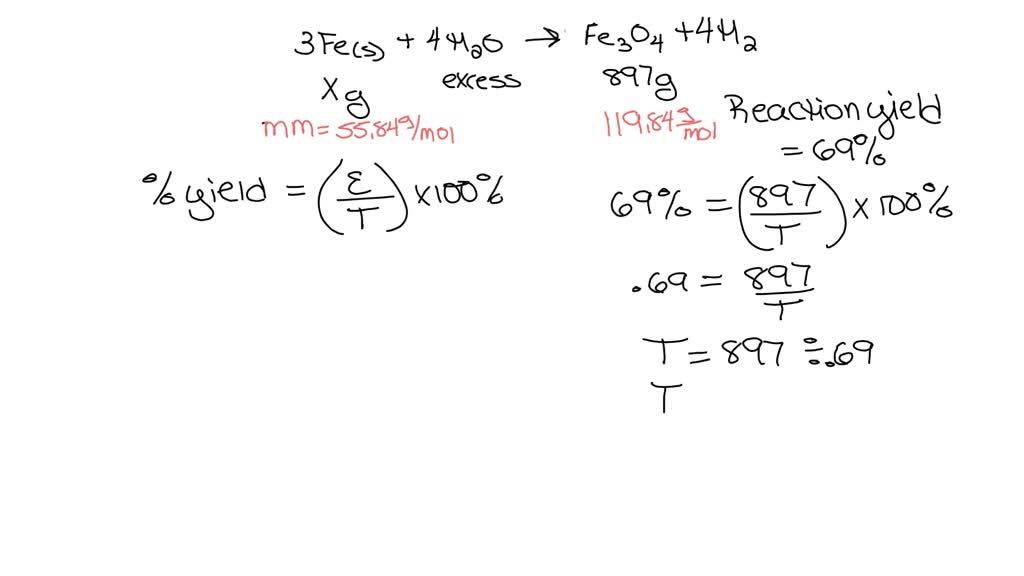 3Fe(s) + 4H₂O → Fe₃O₄ + 4H₂
X g
excess
897g
mm = 55.84 g/mol
119.84 g/mol
Reaction yield
= 69%
% yield = (E/T) × 100%
69% = (897/T) × 100%
.69 = 897/T
T = 897 ÷ .69
T